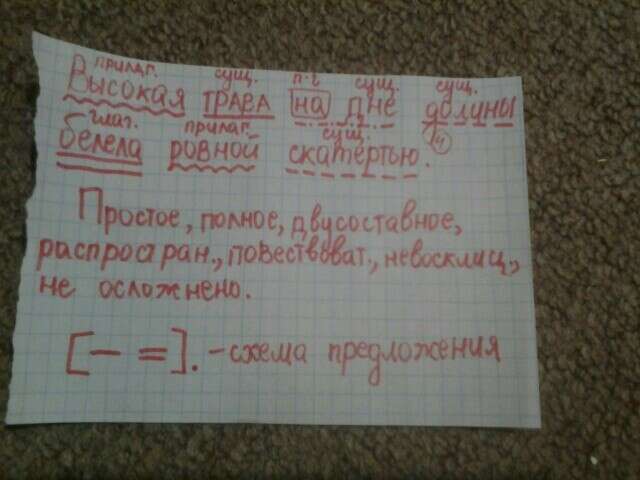 прилаг. сущ. п-г сущ. сущ.
Высокая трава на дне долины
глаг. прилаг. сущ. 4
белела ровной скатертью.
Простое, полное, двусоставное,
распростран., повествоват., невосклиц.,
не осложнено.
[— =]. - схема предложения